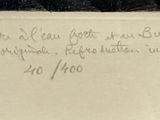 à l'eau forte et au Bu
original. Reproduction in
40/400